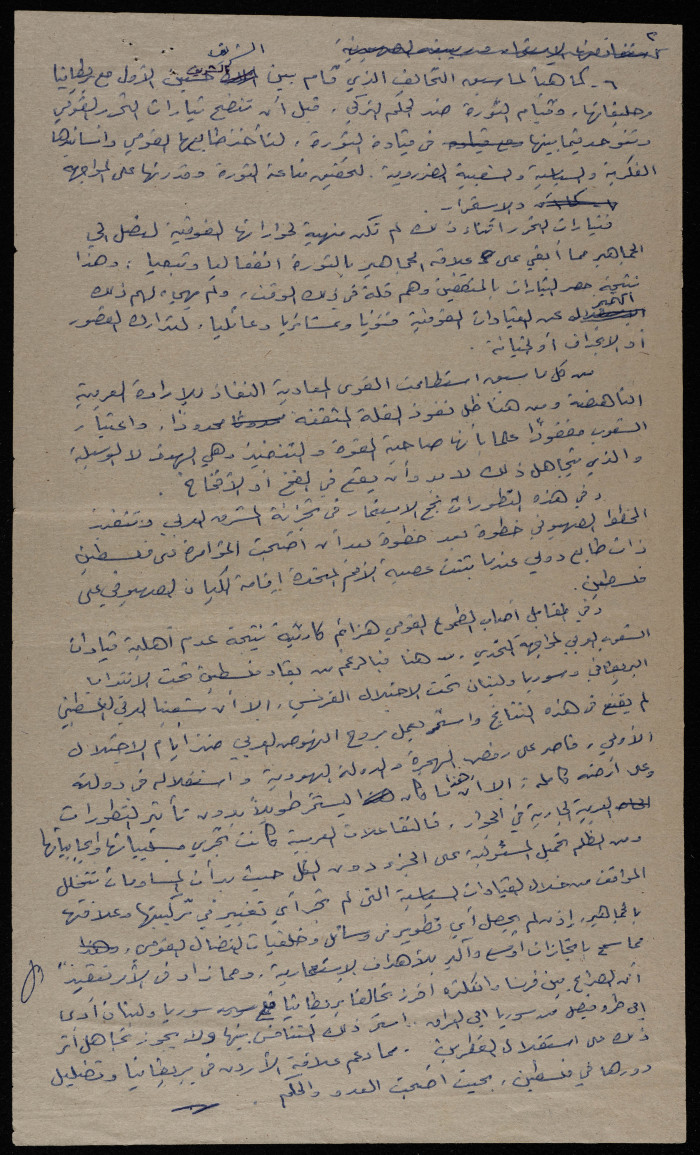 ٢
الشريف
٦ - كما هيأ لما سبق التحالف الذي قام بين حسين الأول مع بريطانيا
وحليفاتها، وقيام الثورة ضد الحكم التركي، قبل أن تنضج تيارات التحرر القومي
وتتوحد فيما بينها في قيادة الثورة، لتأخذ طابعها القومي وأسانيدها
الفكرية والسياسية والشعبية الضرورية. لتحقيق مناعة الثورة وقدرتها على المواجهة
والاستمرار.
فتيارات التحرر أثناء ذلك لم تكن منهية لحواراتها الفوقية لتصل إلى
الجماهير مما أبقى على علاقة الجماهير بالثورة انفعاليا وتبعيا؛ وهذا
نتيجة حصر التيارات بالمثقفين وهم قلة في ذلك الوقت، ولم يهيء لهم ذلك
التميز عن القيادات الفوقية فئويا وعشائريا وعائليا، لتدارك القصور
أو الانحراف أو الخيانة.
من كل ما سبق استطاعت القوى المعادية النفاذ للإرادة العربية
الناهضة ومن هنا ظل نفوذ القلة المثقفة محدودا، واعتبار
الشعوب مفقودا علما بأنها صاحبة القوة والتنفيذ وهي الهدف لا الوسيلة
والذي يتجاهل ذلك لا بد وأن يقع في الفخ أو الأفخاخ.
وفي هذه التطورات نجح الاستعمار في تجزئة المشرق العربي وتنفيذ
المخطط الصهيوني خطوة بعد خطوة بعد أن أضحت المؤامرة على فلسطين
ذات طابع دولي عندما تبنت عصبة الأمم المتحدة إقامة الكيان الصهيوني على
فلسطين.
وفي المقابل أصاب الطموح القومي هزائم كارثية نتيجة عدم أهلية قيادات
الشعب العربي لمواجهة التحدي. من هنا فبالرغم من بقاء فلسطين تحت الانتداب
البريطاني وسوريا ولبنان تحت الاحتلال الفرنسي، إلا أن شعبنا العربي الفلسطيني
لم يقنع في هذه النتائج واستمر يعمل بروح النهوض العربي منذ أيام الاحتلال
الأولى، فأصر على رفض الهجرة والدولة اليهودية واستقلاله في دولته
وعلى أرضه كاملة؛ إلا أن هذا ما كان ليستمر طويلا بدون تأثير التطورات
العربية الجارية في الجوار، فالتفاعلات العربية كانت تجري بسلبياتها وإيجابياتها
ومن الظلم تحميل المسئولية على الجزء دون الكل حيث بدأت المساومات تتخلل
المواقف من خلال القيادات السياسية التي لم تجر أي تغيير في تركيبتها وعلاقتها
بالجماهير. إذ لم يحصل أي تطوير في وسائل وخلفيات النضال القومي،
مما سمح بامتيازات أوسع وأكبر للأهداف الاستعمارية. ومما زاد في الأمر تعقيدا
أن الصراع بين فرنسا وانكلترة أفرز تحالفا بريطانيا مع سوريا ولبنان أدى
إلى طرد فيصل من سوريا إلى العراق. استمر ذلك التنافس بينها ولا يجوز تجاهل أثر
ذلك على استقلال القطرين. مما دعم علاقة الأردن في بريطانيا وتضليل
دورها في فلسطين، بحيث أضحت العدو والحكم.